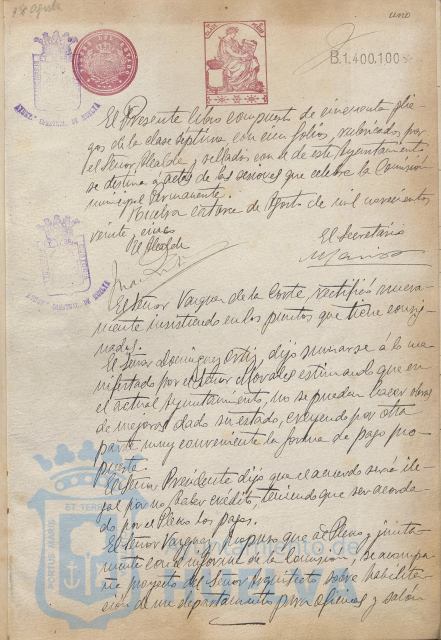 uno
B.1.400.100
AYUNT. CONSTNAL. DE HUELVA
El Presente libro compuesto de cincuenta plie-
gos de la clase septima con cien folios, rubricados por
el Señor Alcalde y sellados con el de este Ayuntamiento
se destina a actas de las sesiones que celebre la Comisión
municipal Permanente.
Huelva catorce de Agosto de mil novecientos
veinte
El Alcalde
El Secretario
AYUNT. CONSTNAL. DE HUELVA
El Señor Vazquez de la Corte, rectificó nueva-
mente insistiendo en los puntos que tiene consig-
nados.
El Señor Dominguez Ortiz, dijo sumarse á lo ma-
nifestado por el Señor Morales estimando que en
el actual Ayuntamiento, no se puedan hacer obras
de mejoras dado su estado, creyendo por otra
parte, muy conveniente la forma de pago pro-
puesta.
El Señor Presidente dijo que el acuerdo será ile-
gal por no haber credito, teniendo que ser acorda-
do por el Pleno los pagos.
El Señor Vazquez propuso que al Pleno y junta-
mente con el informe de la Comisión, se acompa-
ñe proyecto del Señor Arquitecto sobre habilita-
ción de un departamento para oficinas y salón
Ayuntamiento de
HUELVA
PORTUS MARIS
ET TERRE